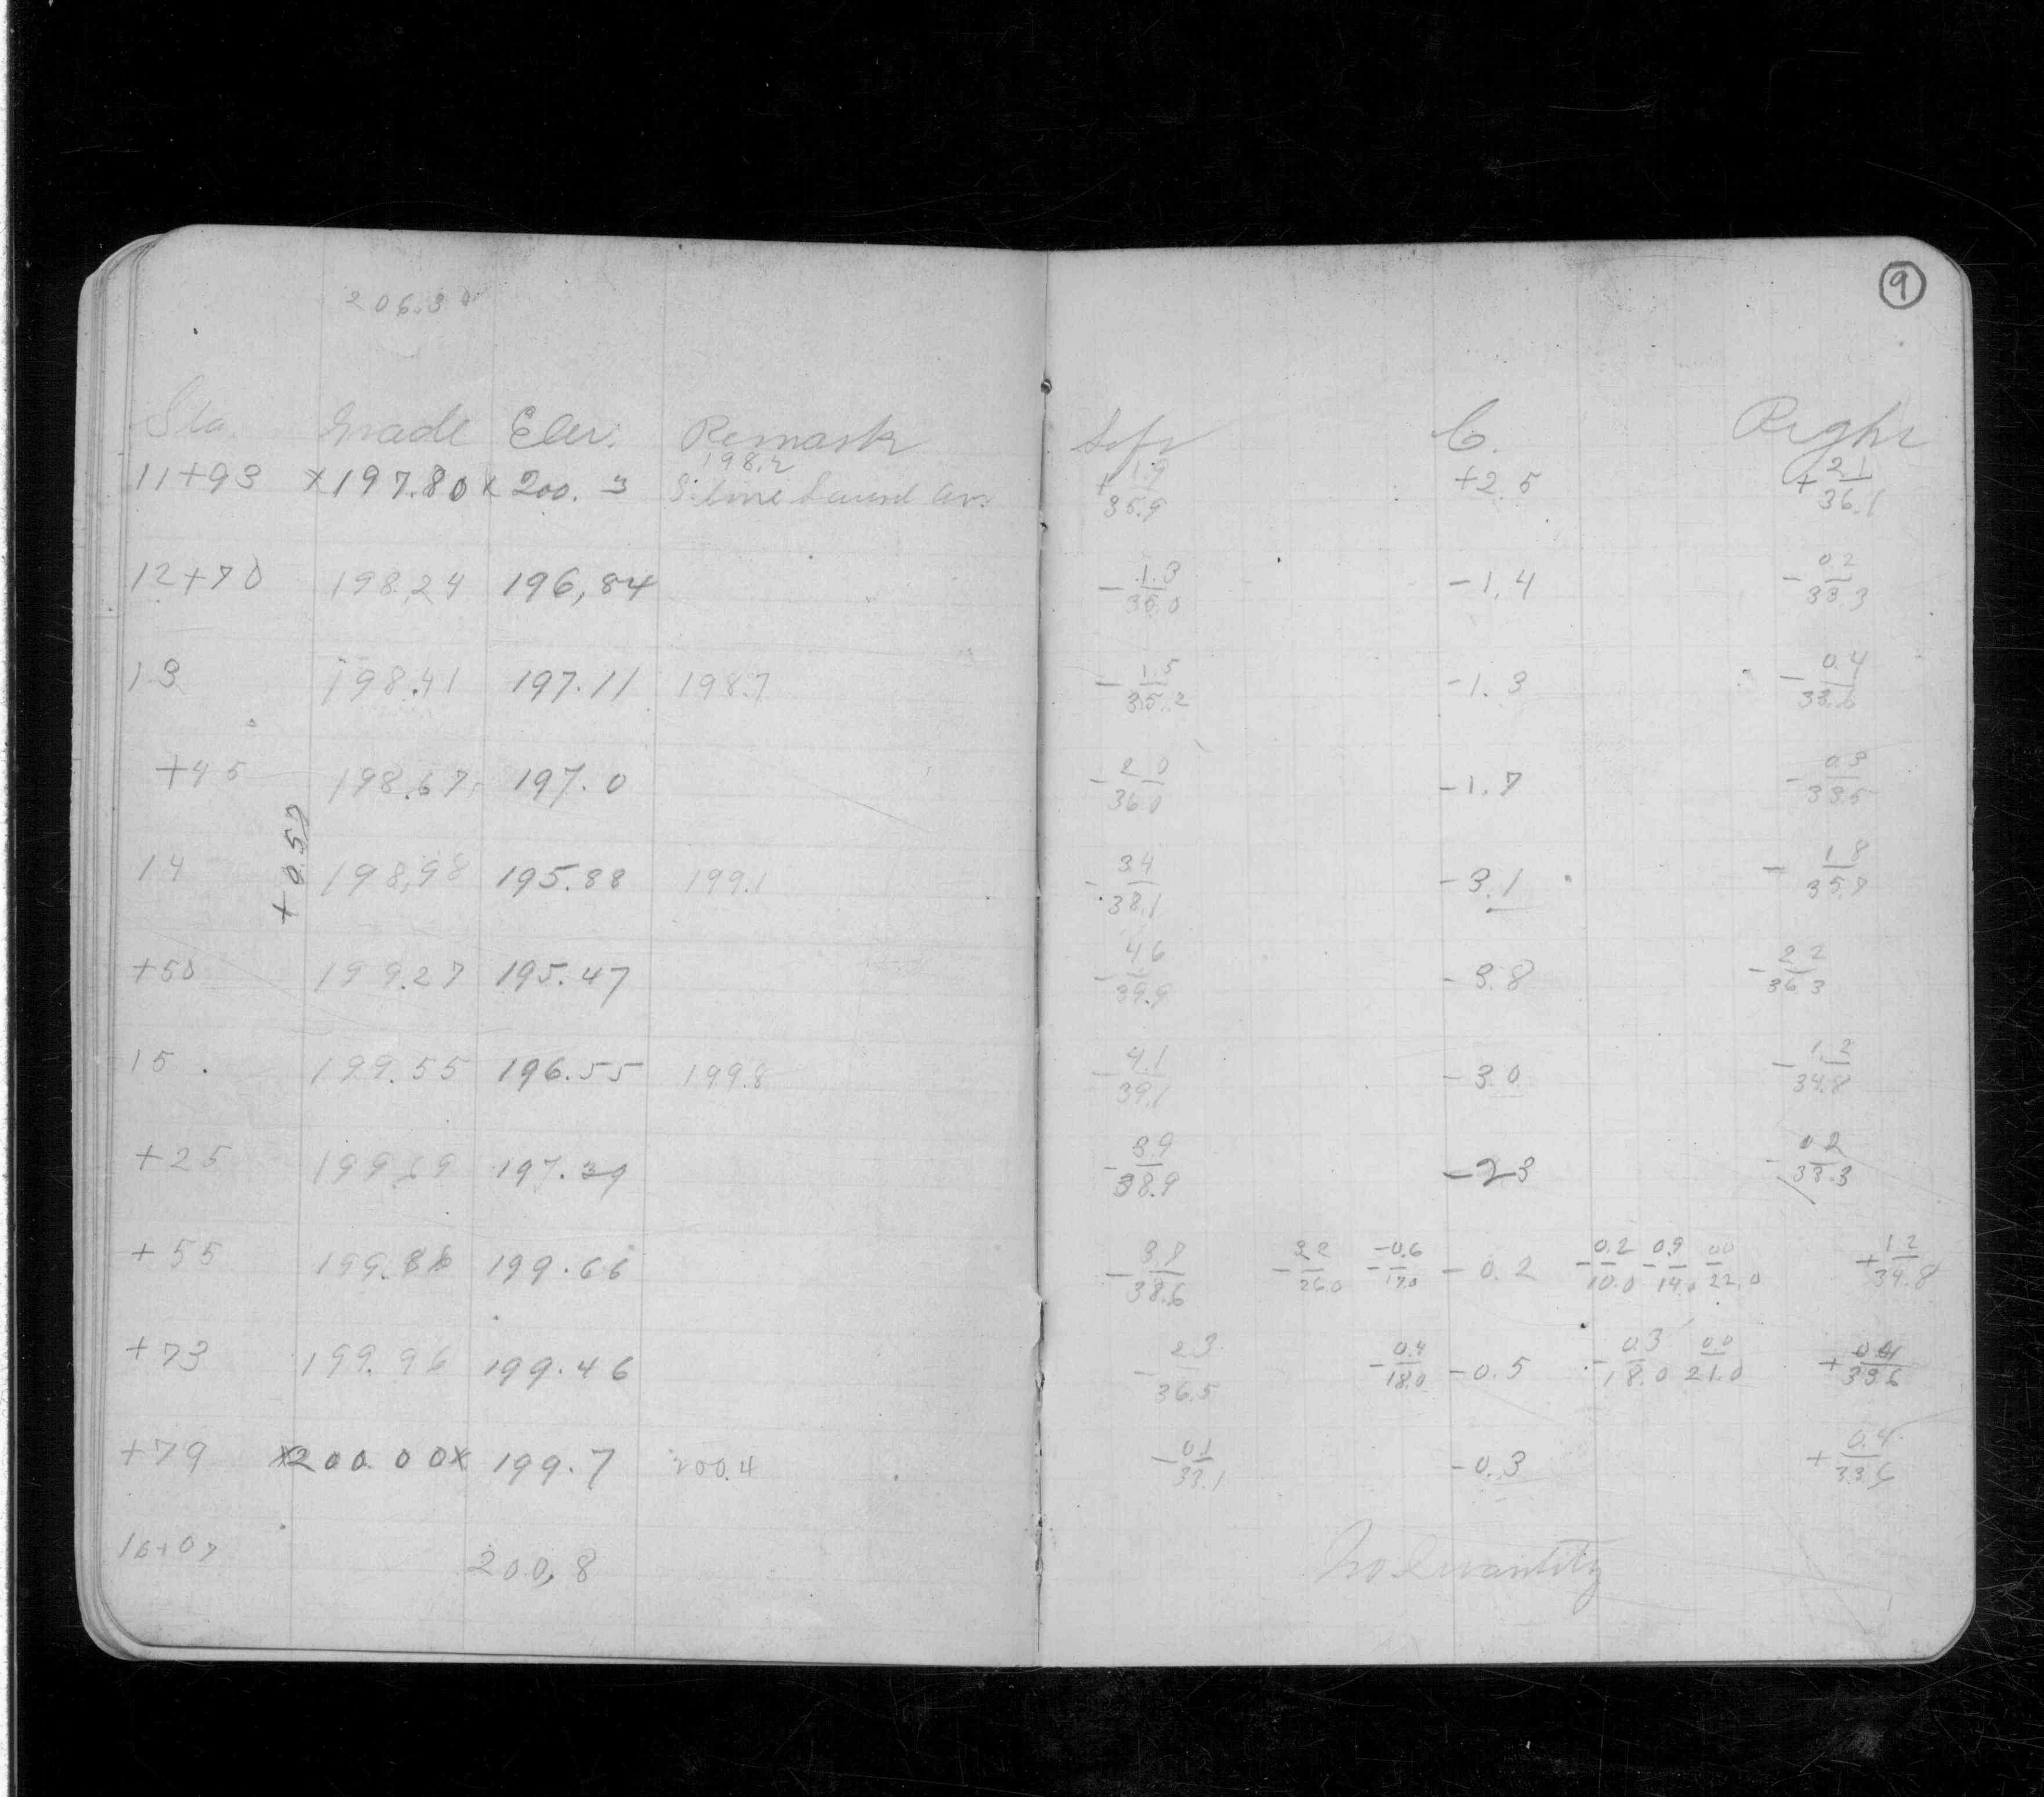 9
206.30
Sta. Grade Elev. Remark Left C. Right
198.2
11+93 x197.80x 200.3 S. line Laurel Av. +1.9/35.9 +2.5 +2.1/36.1
12+70 198.24 196,84 -1.3/35.0 -1.4 -0.2/33.3
13 198.41 197.11 198.7 -1.5/35.2 -1.3 -0.4/33.6
+45 198.67 197.0 -2.0/36.0 -1.7 -0.3/33.5
+0.57
14 198,98 195.88 199.1 -3.4/38.1 -3.1 -1.8/35.7
+50 199.27 195.47 -4.6/39.9 -3.8 -2.2/36.3
15 199.55 196.55 199.8 -4.1/39.1 -3.0 -1.2/34.8
+25 199.69 197.39 -3.9/38.9 -2.3 -0.2/33.3
+55 199.86 199.66 -3.7/38.6 -3.2/26.0 -0.6/17.0 -0.2 -0.2/10.0 -0.9/14.0 0.0/22.0 +1.2/34.8
+73 199.96 199.46 -2.3/36.5 -0.4/18.0 -0.5 -0.3/18.0 0.0/21.0 +0.4/33.6
+79 x200.00x 199.7 200.4 -0.1/33.1 -0.3 +0.4/33.6
16+07 200,8 No Quantity